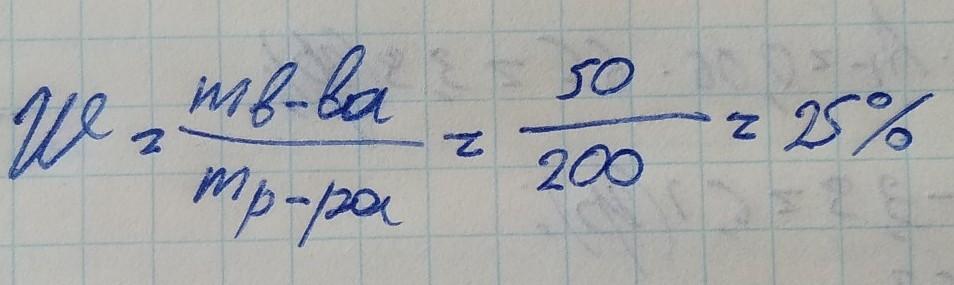 W = mв-ва / mр-ра = 50 / 200 = 25%